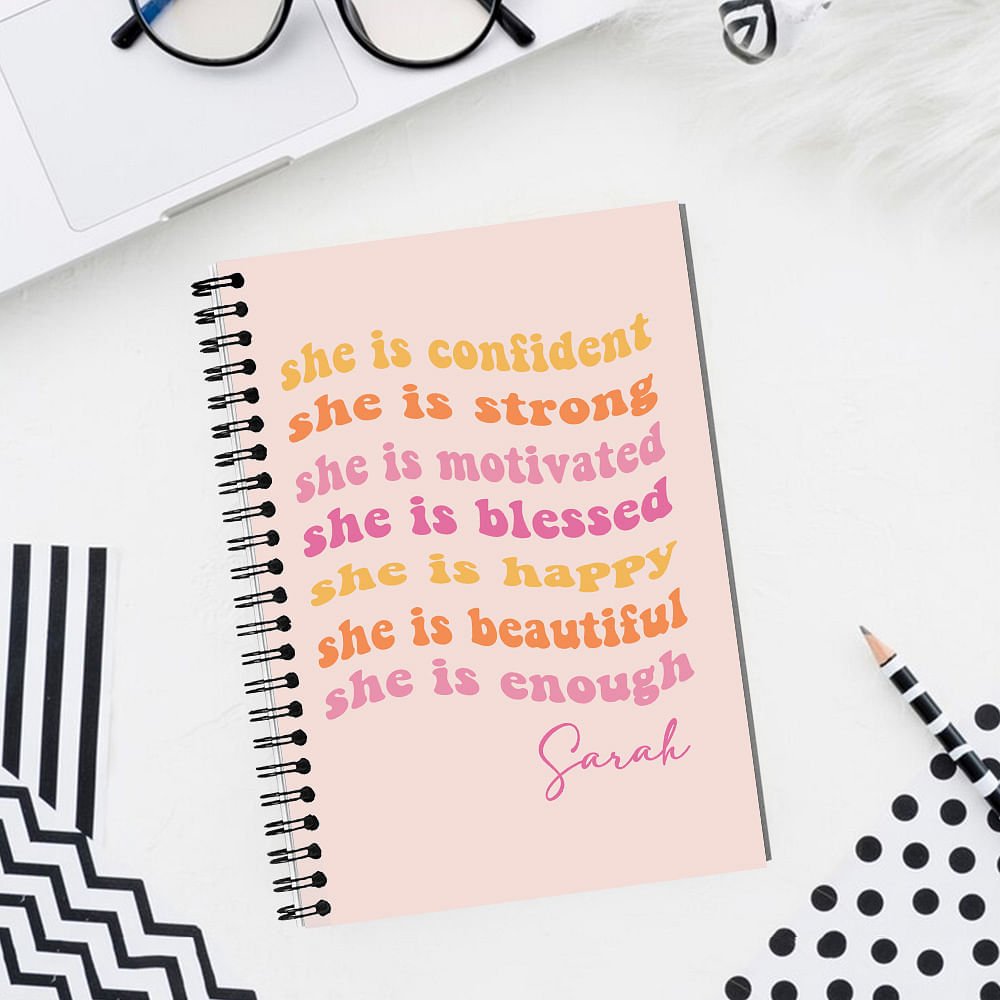 she is confident
she is strong
she is motivated
she is blessed
she is happy
she is beautiful
she is enough
Sarah